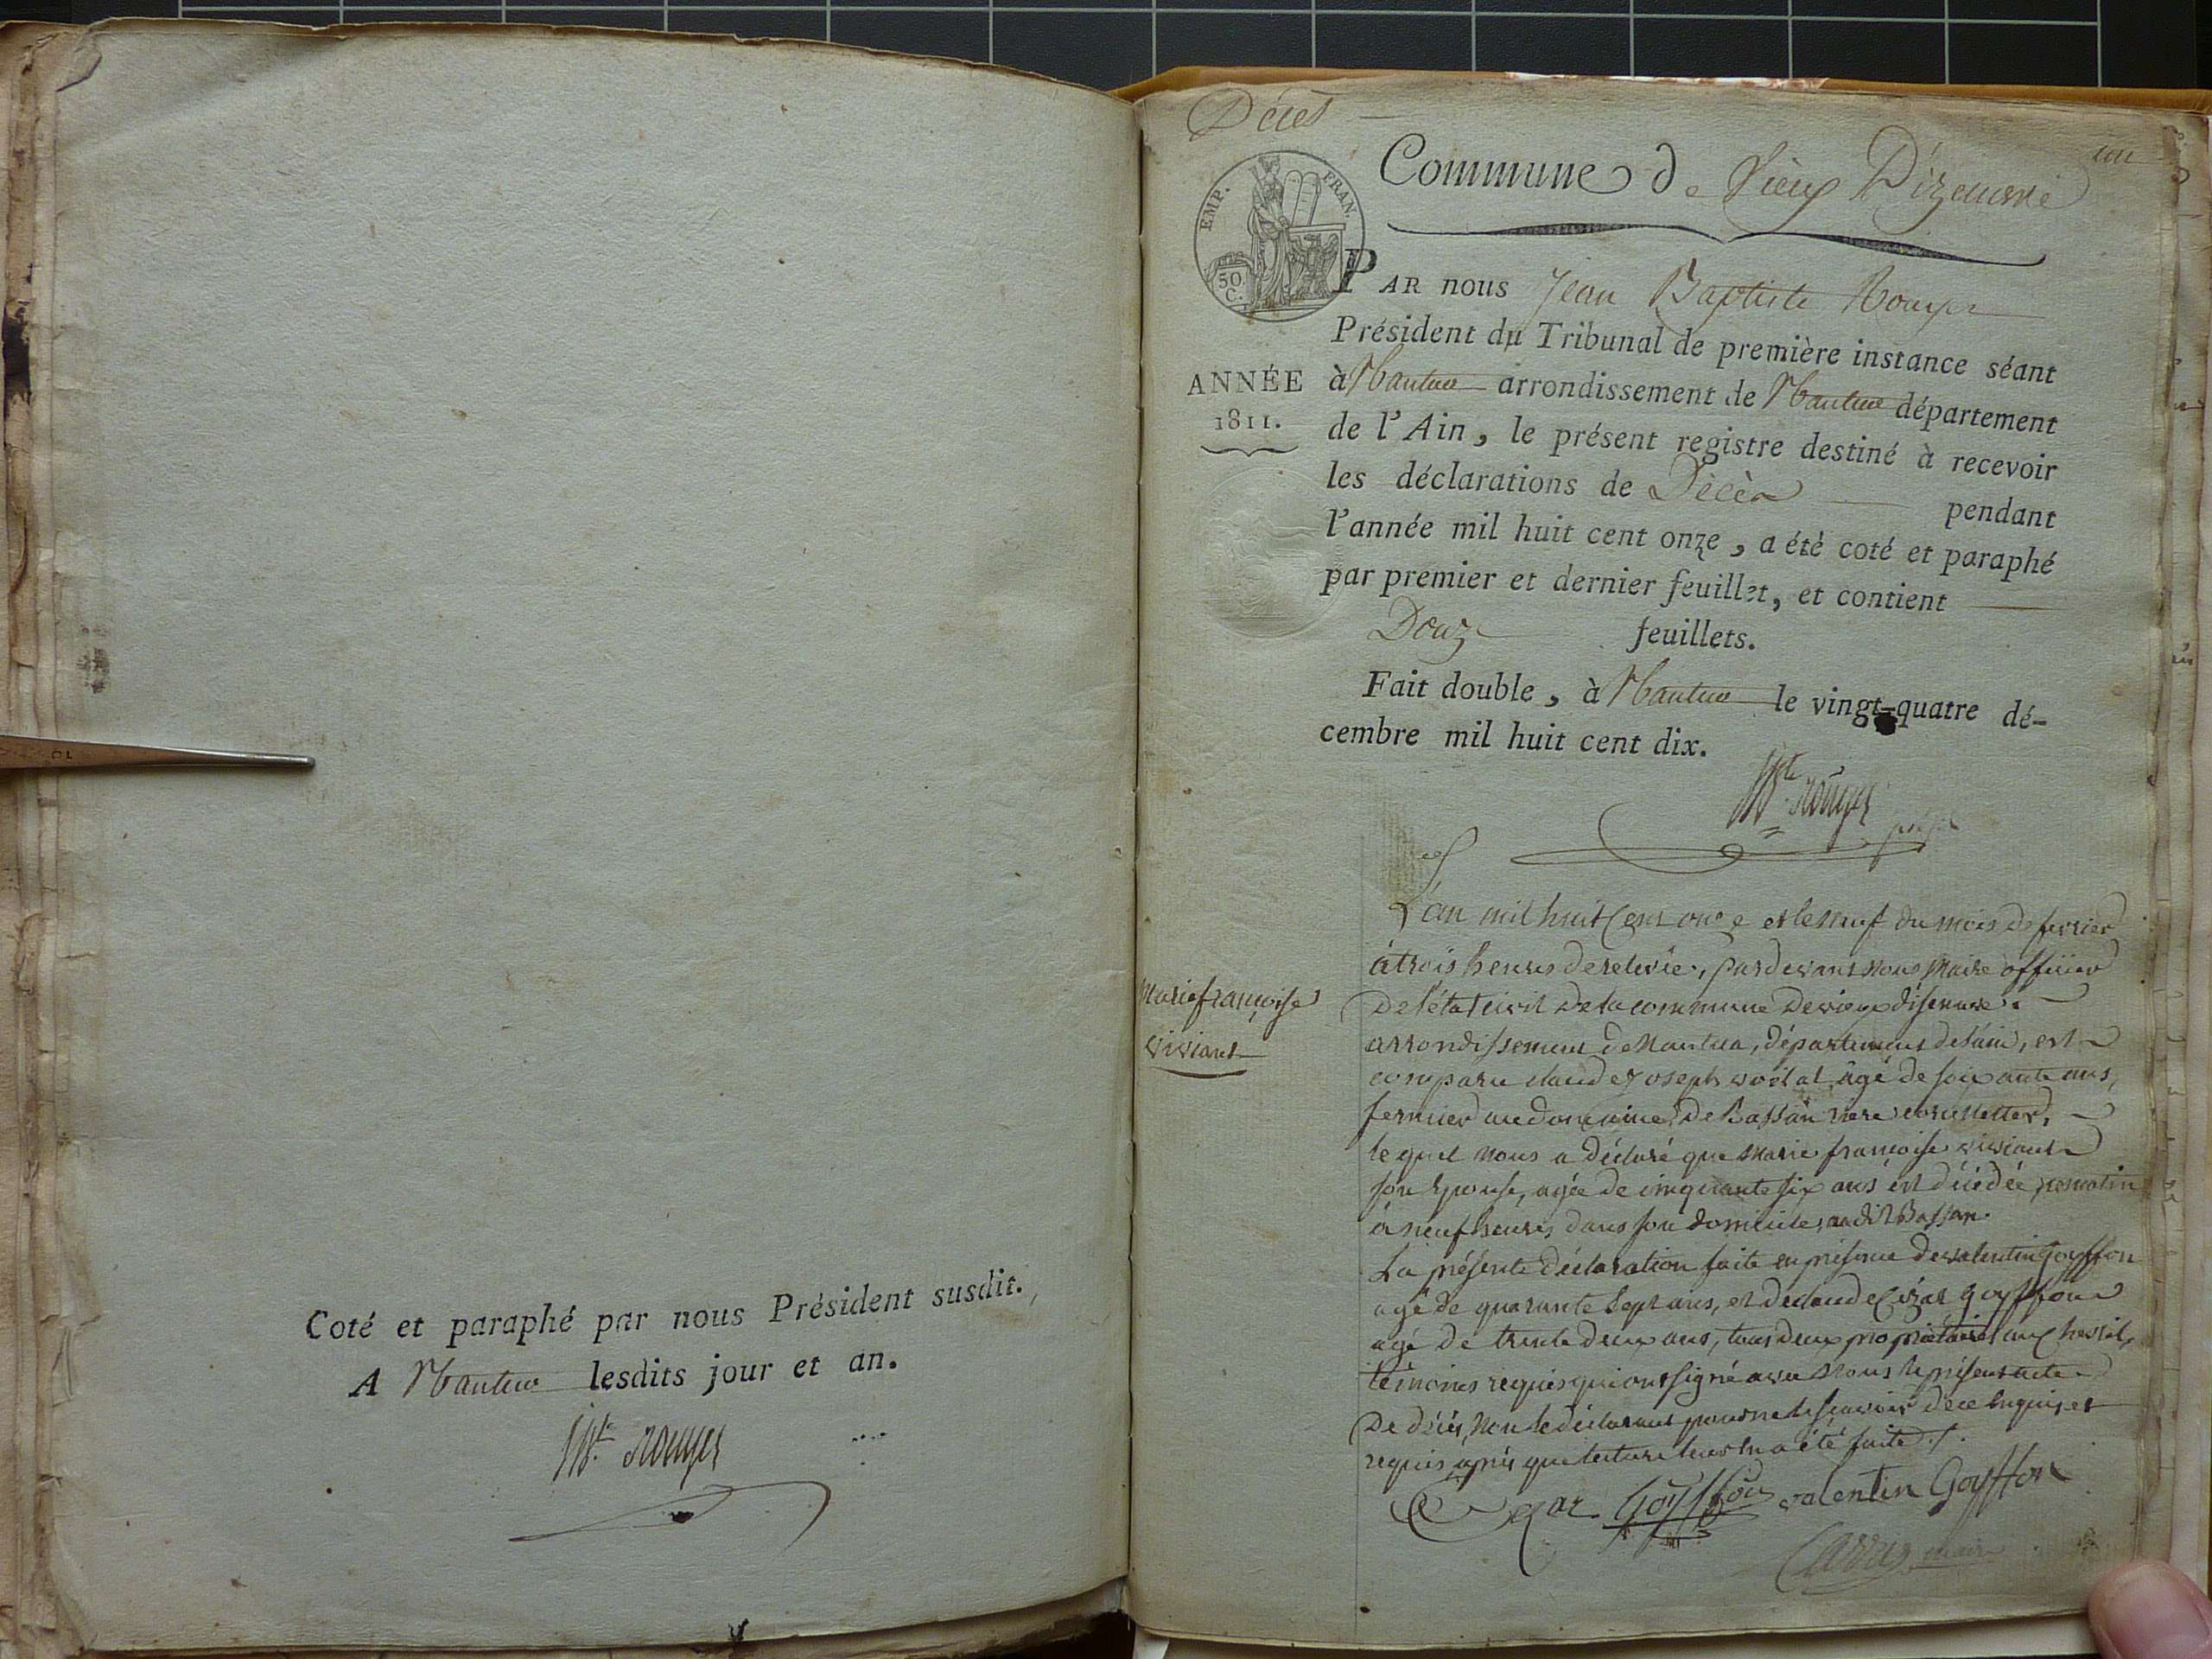 Coté et paraphé par nous Président susdit.
A Nantua lesdits jour et an.
J Bte Rouyer
Décès
un
Commune de Vieux Dizenave
EMP. FRAN.
50 C.
PAR nous Jean Baptiste Rouyer
Président du Tribunal de première instance séant
ANNÉE
1811.
à Nantua arrondissement de Nantua département
de l'Ain, le présent registre destiné à recevoir
les déclarations de Décès pendant
l'année mil huit cent onze, a été coté et paraphé
par premier et dernier feuillet, et contient
Douze feuillets.
Fait double, à Nantua le vingt-quatre dé-
cembre mil huit cent dix.
J Bte Rouyer
L'an mil huit Cent onze et le neuf du mois de fevrier
à trois heures de relevée, pardevant nous Maire officier
Marie françoise
viviant
De l'état civil de la commune de vieux disenave
arrondissement de Nantua, département de l'ain, est
comparu claude joseph agé de soixante ans,
fermier au domaine de Bassan
lequel nous a déclaré que marie françoise viviant
son Epouse, agée de cinquante six ans est décédée ce matin
à neuf heures dans son domicile, audit Bassan.
La présente déclaration faite en présence de valentin Goyffon
agé de quarante sept ans, et de claude Cézar goyffon
agé de trente deux ans, tous deux propriétaires
témoins requis qui ont signé avec Nous le présent acte
De décès, Non le déclarant pour ne le sçavoir de ce enquis et
requis après que lecture leur en a été faite ./.
Cezar Goyffon valentin Goyffon
maire